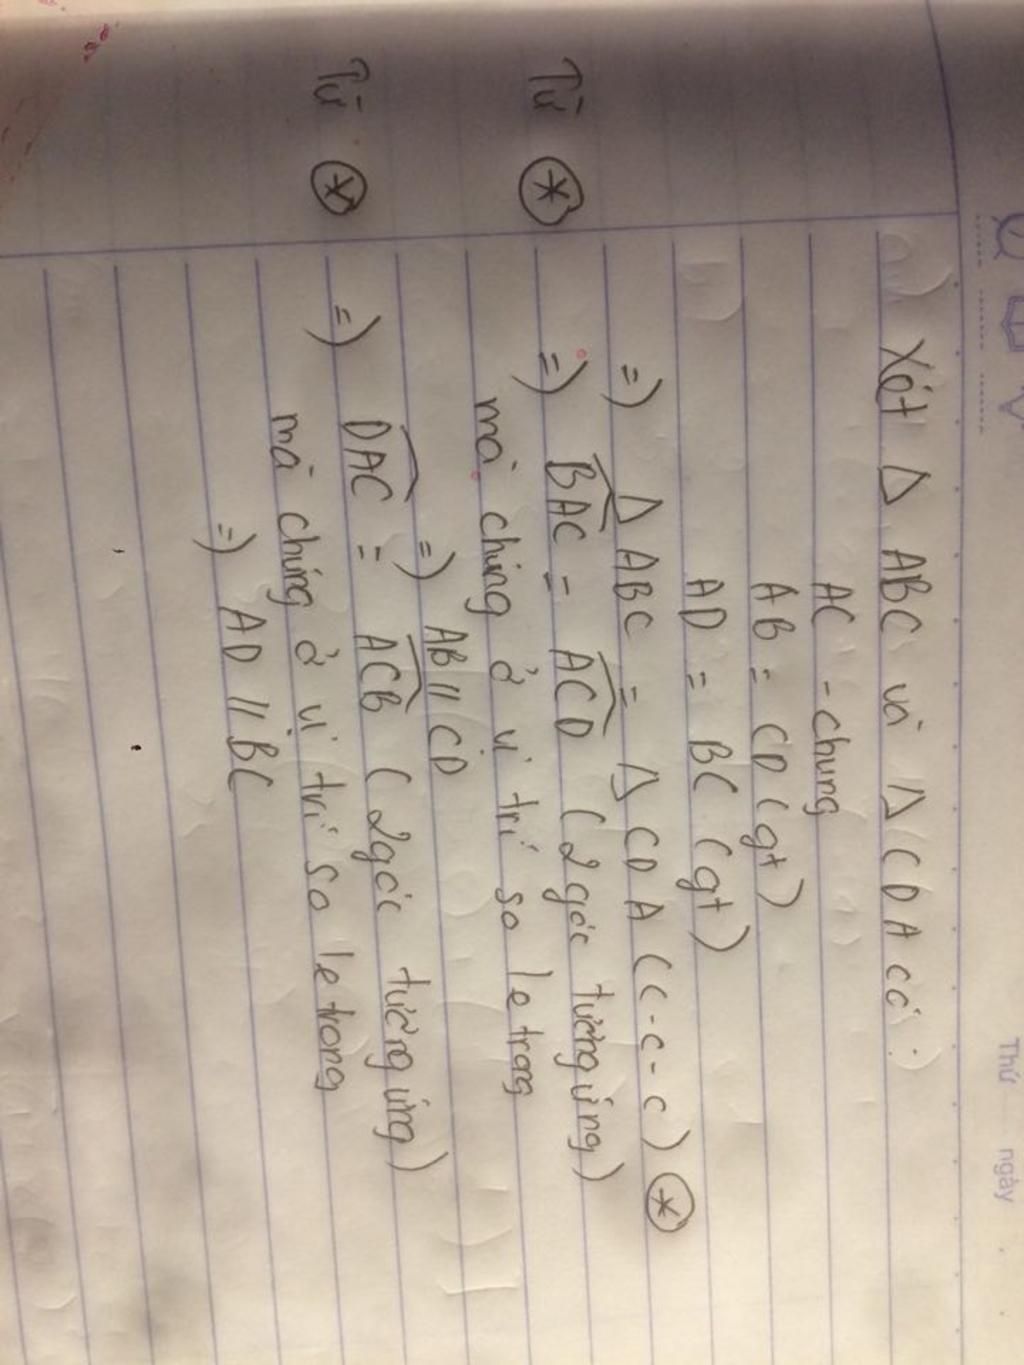 Thứ ngày
Xét Δ ABC và Δ CDA có:
AC - chung
AB = CD (gt)
AD = BC (gt)
=) Δ ABC = Δ CDA (c-c-c) (*)
Từ (*) =) BAC = ACD (2 góc tương ứng)
mà chúng ở vị trí so le trong
=) AB // CD
Từ (*) =) DAC = ACB (2 góc tương ứng)
mà chúng ở vị trí so le trong
=) AD // BC